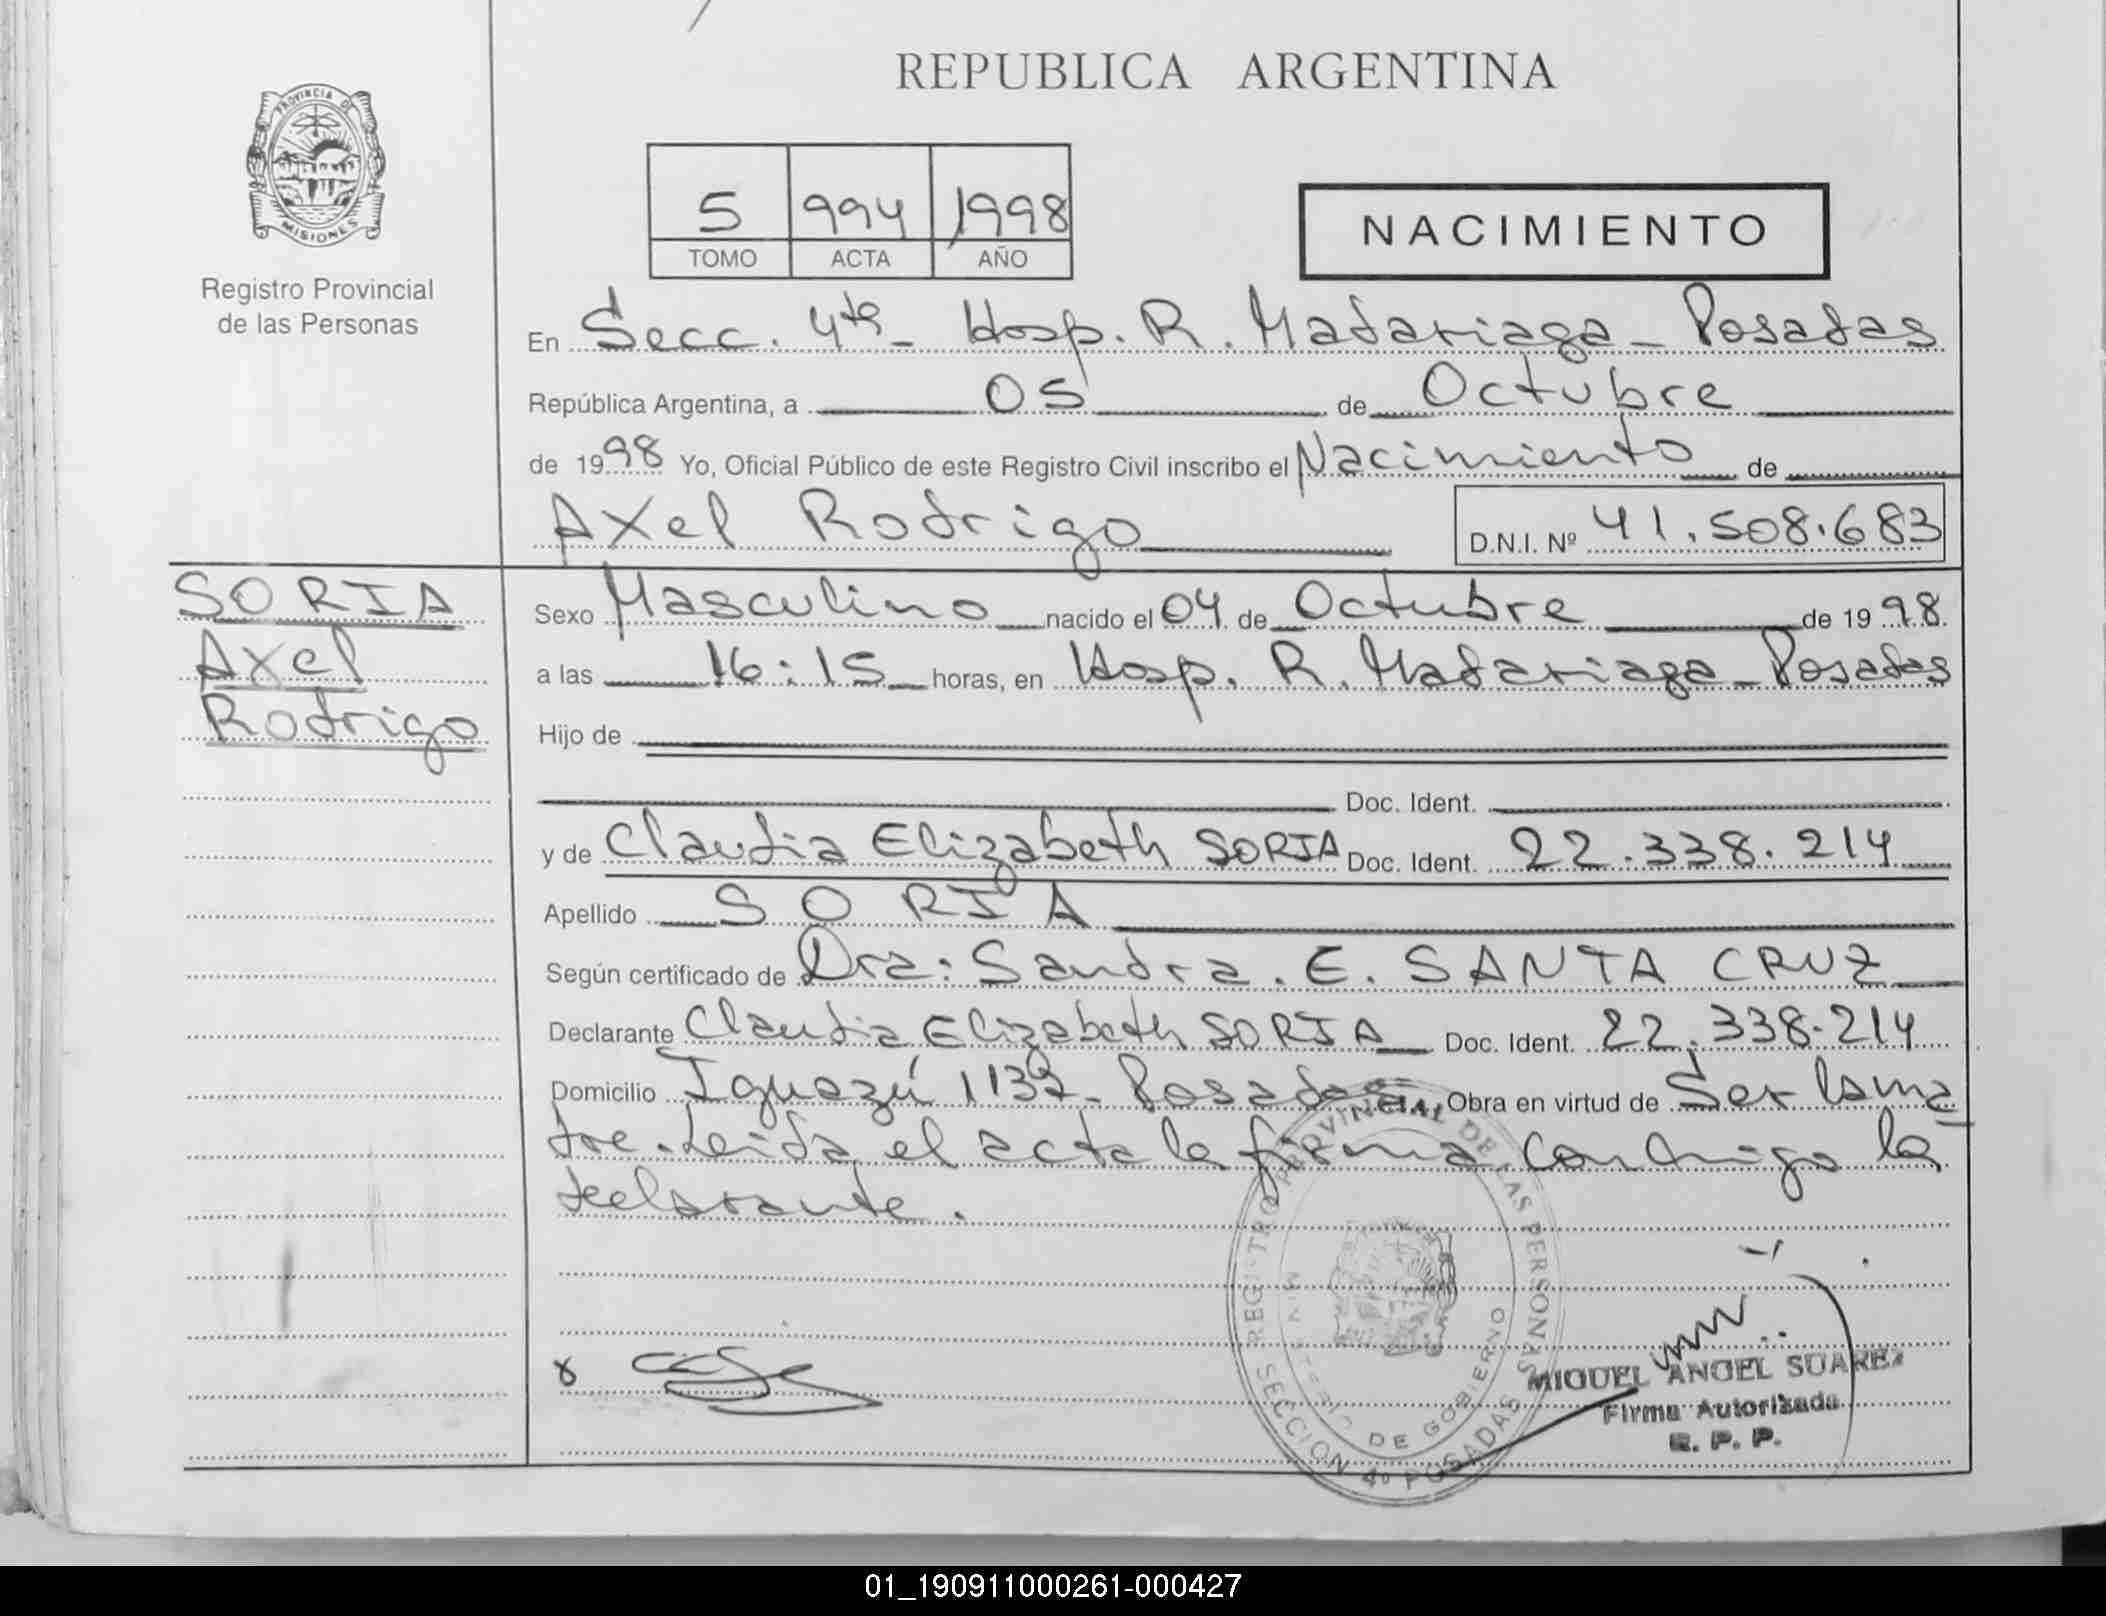 REPUBLICA ARGENTINA
PROVINCIA DE
MISIONES
Registro Provincial
de las Personas
5 994 1998
TOMO ACTA AÑO
NACIMIENTO
En Secc. 4ta - Hosp. R. Madariaga - Posadas
República Argentina, a 05 de Octubre
de 1998 Yo, Oficial Público de este Registro Civil inscribo el Nacimiento de
Axel Rodrigo D.N.I. Nº 41.508.683
SORIA
Axel
Rodrigo
Sexo Masculino nacido el 04 de Octubre de 1998.
a las 16:15 horas, en Hosp. R. Madariaga - Posadas
Hijo de
Doc. Ident.
y de Claudia Elizabeth SORIA Doc. Ident. 22.338.214
Apellido SORIA
Según certificado de Dra: Sandra. E. SANTA CRUZ
Declarante Claudia Elizabeth SORIA Doc. Ident. 22.338.214
Domicilio Iguazú 1132 - Posadas Obra en virtud de Ser la ma
dre. Leida el acta la firma conmigo la
declarante.
REGISTRO PROVINCIAL DE LAS PERSONAS
MINISTERIO DE GOBIERNO
SECCION 4º POSADAS
MIGUEL ANGEL SUAREZ
Firma Autorizada
R. P. P.
01_190911000261-000427